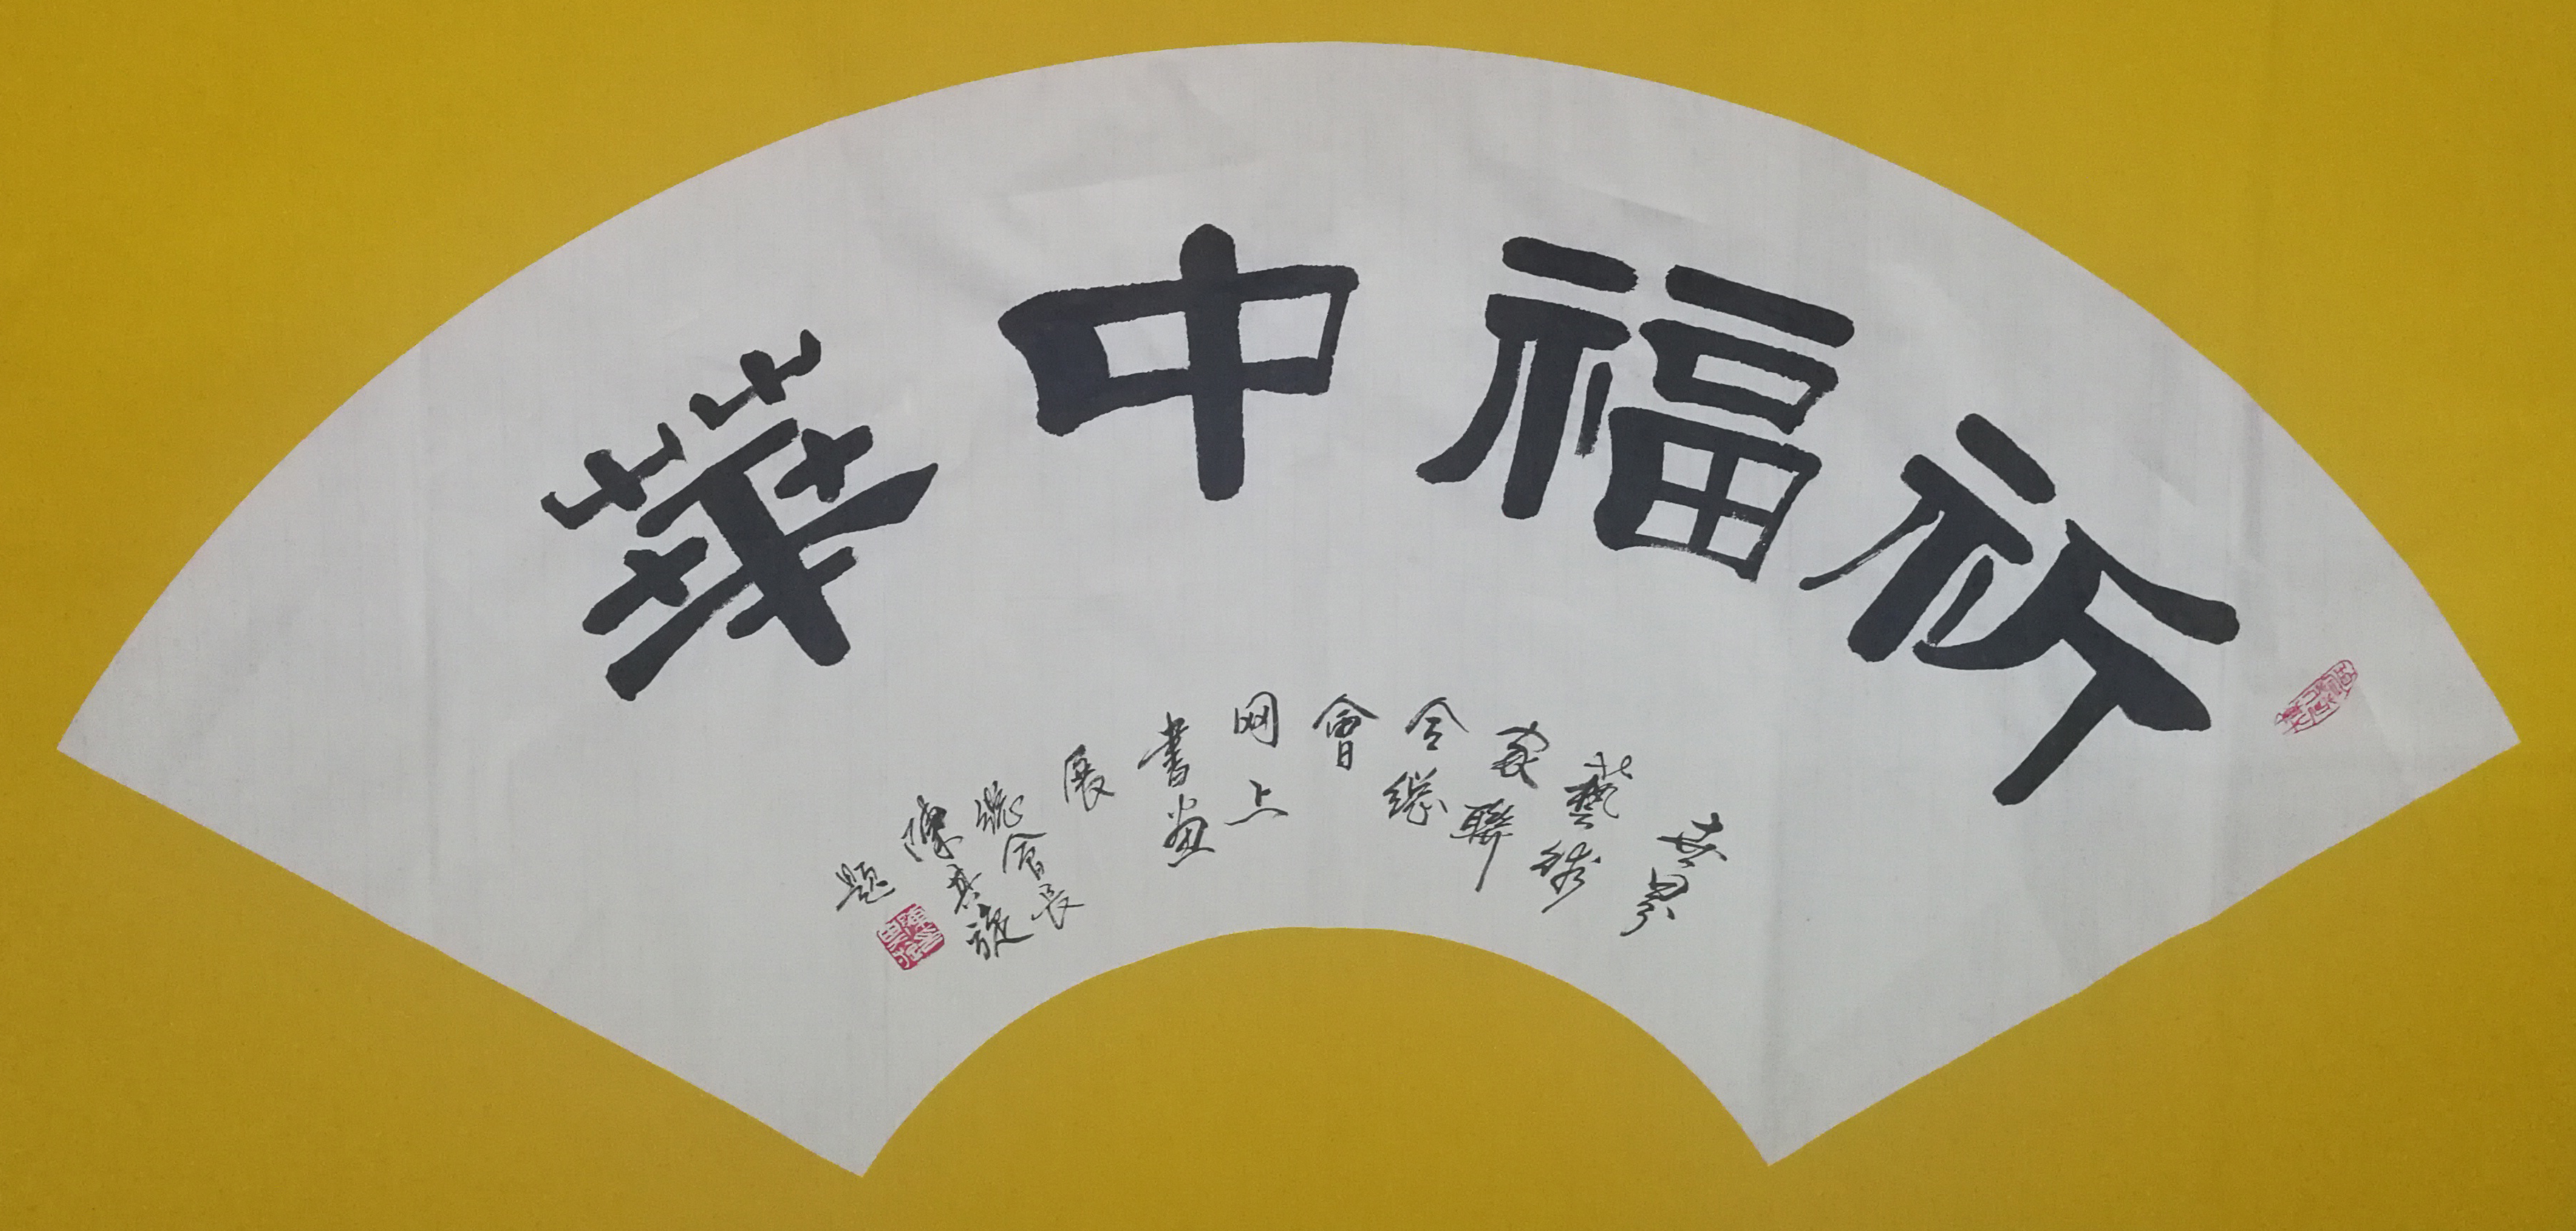 祈福中華
世界
藝術
家聯
合總
會
网上
書畫
展
總會長
陳其旋
題